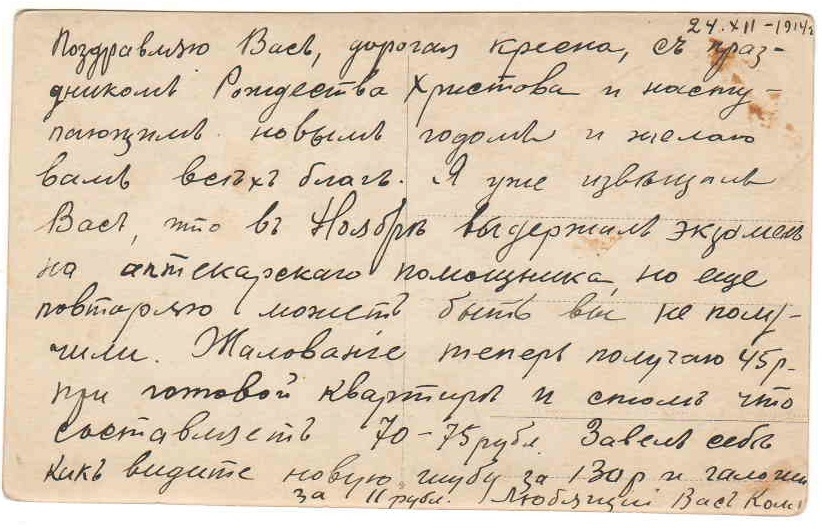 24.XII-1914г
Поздравляю Васъ, дорогая кресна, съ праз-
дникомъ Рождества Христова и насту-
пающимъ новымъ годомъ и желаю
вамъ всѣхъ благъ. Я уже извѣщалъ
Васъ, что въ Ноябрѣ выдержалъ экзаменъ
на аптекарскаго помощника, но еще
повторяю можетъ быть вы не полу-
чили. Жалованіе теперь получаю 45р-
при готовой квартирѣ и столѣ что
составляетъ 70-75 рубл. Завелъ себѣ
Какъ видите новую шубу за 130р и галоши
за 11 рубл. Любящій Васъ Коля